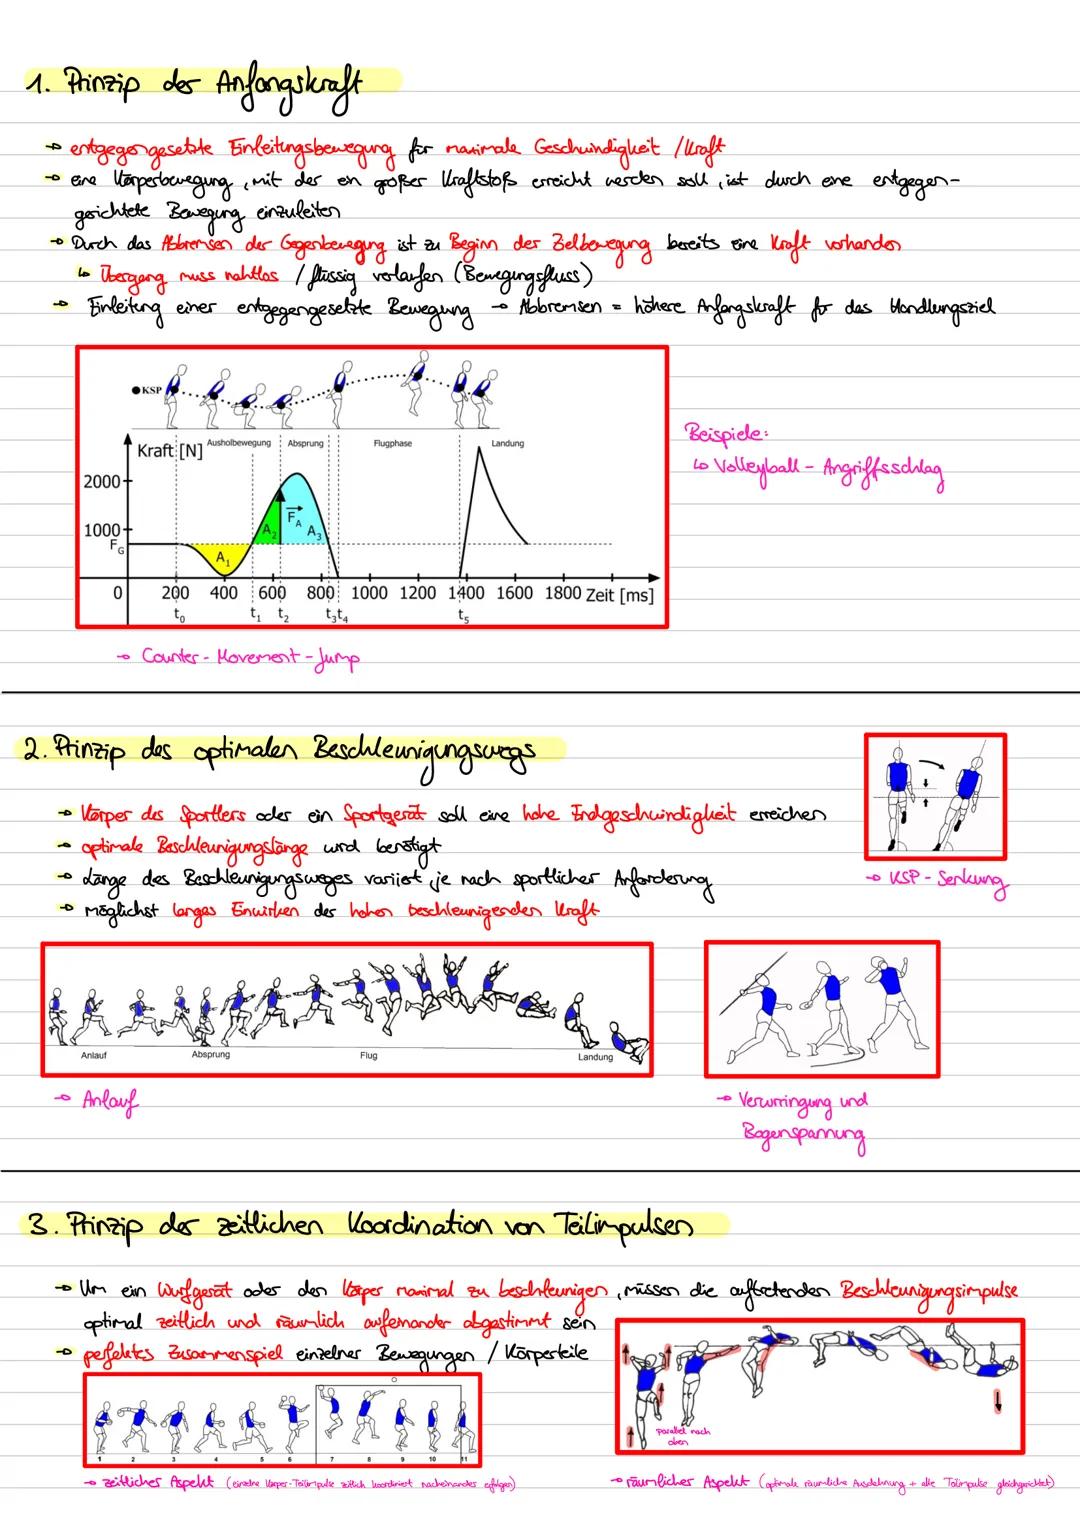 1. Prinzip der Anfangskraft
→ entgegengesetzte Einleitungsbewegung für maximale Geschwindigkeit / Kraft
→ eine Körperbewegung, mit der ein großer Kraftstoß erreicht werden soll, ist durch eine entgegen-
gerichtete Bewegung einzuleiten
→ Durch das Abbremsen der Gegenbewegung ist zu Beginn der Zielbewegung bereits eine Kraft vorhanden
↳ Übergang muss nahtlos / flüssig verlaufen (Bewegungsfluss)
→ Einleitung einer entgegengesetzte Bewegung → Abbremsen = höhere Anfangskraft für das Handlungsziel
KSP
Kraft [N]
Ausholbewegung Absprung Flugphase Landung
2000
1000
F_G
A₁ A₂ F_A A₃
0 200 400 600 800 1000 1200 1400 1600 1800 Zeit [ms]
t₀ t₁ t₂ t₃ t₄ t₅
Beispiele:
↳ Volleyball - Angriffsschlag
→ Counter-Movement-Jump
2. Prinzip des optimalen Beschleunigungswegs
→ Körper des Sportlers oder ein Sportgerät soll eine hohe Endgeschwindigkeit erreichen
→ optimale Beschleunigungslänge wird benötigt
→ Länge des Beschleunigungsweges variiert je nach sportlicher Anforderung
→ möglichst langes Einwirken der hohen beschleunigenden Kraft
→ KSP-Senkung
Anlauf Absprung Flug Landung
→ Anlauf
→ Verwringung und
Bogenspannung
3. Prinzip der zeitlichen Koordination von Teilimpulsen
→ Um ein Wurfgerät oder den Körper maximal zu beschleunigen, müssen die auftretenden Beschleunigungsimpulse
optimal zeitlich und räumlich aufeinander abgestimmt sein
→ perfektes Zusammenspiel einzelner Bewegungen / Körperteile
1 2 3 4 5 6 7 8 9 10 11
parallel nach
oben
→ zeitlicher Aspekt (einzelne Körper-Teilimpulse zeitlich koordiniert nacheinander erfolgen)
→ räumlicher Aspekt (optimale räumliche Ausdehnung + alle Teilimpulse gleichgerichtet)